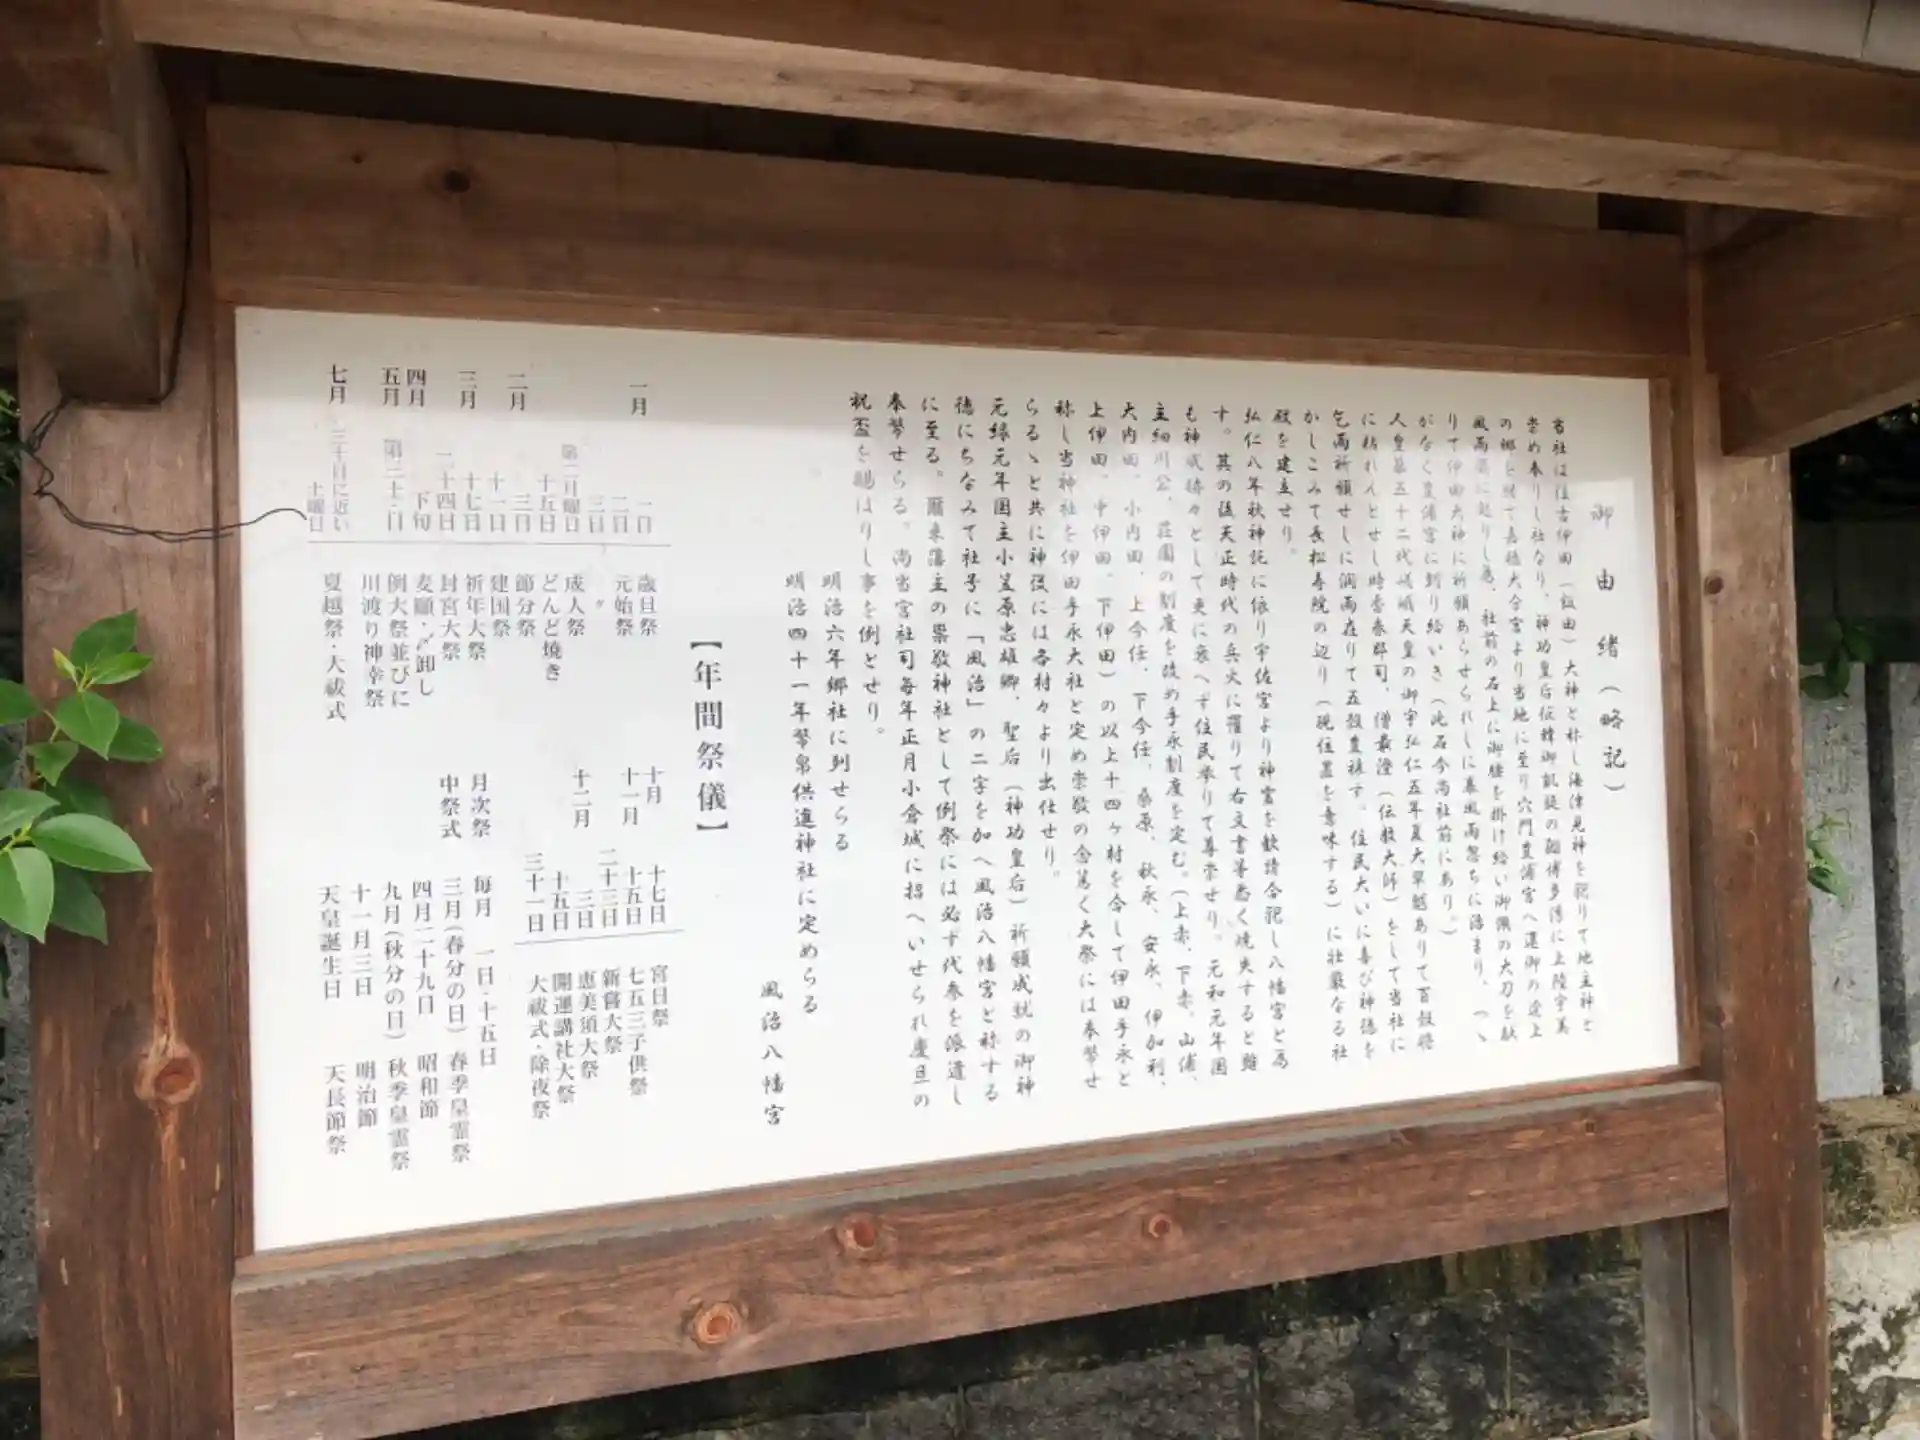 御由緒（略記）
当社は往古伊田（飯田）大神と称し海津見神を祀りて地主神と
崇め奉りし社なり。神功皇后征韓御凱旋の砌博多港に上陸宇美
の郷を経て嘉穂大分宮より当地に至り穴門豊浦宮へ還御の途上
風雨に起りし為、社前の石上に御腰を掛け給い御佩の大刀を献
りて伊田大神に祈願あらせられしに暴風雨忽ちに治まり、
がなく豊浦宮に到り給いき（此石今尚社前にあり。）
人皇第五十二代嵯峨天皇の御宇弘仁五年夏大旱魃ありて百穀将
に枯れんとせし時香春郡司、僧最澄（伝教大師）をして当社に
乞雨祈願せしに潤雨在りて五穀豊穣す。住民大いに喜び神徳を
かしこみて長松寿院の辺り（現位置を意味する）に壮厳なる社
殿を建立せり。
弘仁八年秋神託に依り宇佐宮より神霊を歓請合祀し八幡宮と為
す。其の後天正時代の兵火に罹りて右文書等悉く焼失すると雖
も神威赫々として更に衰へず住民挙りて尊崇せり。元和元年国
主細川公、荘園の制度を改め手永制度を定む。（上赤、下赤、山浦、
大内田、小内田、上今任、下今任、桑原、秋永、安永、伊加利、
上伊田、中伊田、下伊田）の以上十四ヶ村を合して伊田手永と
称し当神社を伊田手永大社と定め崇敬の念篤く大祭には奉幣せ
らるゝと共に神役には各村々より出仕せり。
元禄元年国主小笠原忠雄郷、聖后（神功皇后）祈願成就の御神
徳にちなみて社号に「風治」の二字を加へ風治八幡宮と称する
に至る。爾来藩主の崇敬神社として例祭には必ず代参を派遣し
奉幣せらる。尚当宮社司毎年正月小倉城に招へいせられ慶旦の
祝盃を賜はりし事を例とせり。
明治六年郷社に列せらる
明治四十一年幣帛供進神社に定めらる
風治八幡宮
【年間祭儀】
一月 一日 歳旦祭
二日 元始祭
三日 〃
第二月曜日 成人祭
十五日 どんど焼き
二月 三日 節分祭
十一日 建国祭
三月 十七日 祈年大祭
二十四日 封宮大祭
四月 下旬 麦願・〆卸し
五月 第三土・日 例大祭並びに
川渡り神幸祭
七月 三十日に近い
土曜日 夏越祭・大祓式
十月 十七日 宮日祭
十一月 十五日 七五三子供祭
二十三日 新嘗大祭
十二月 三日 恵美須大祭
十五日 開運講社大祭
三十一日 大祓式・除夜祭
月次祭 毎月 一日・十五日
中祭式 三月（春分の日） 春季皇霊祭
四月二十九日 昭和節
九月（秋分の日） 秋季皇霊祭
十一月三日 明治節
天皇誕生日 天長節祭